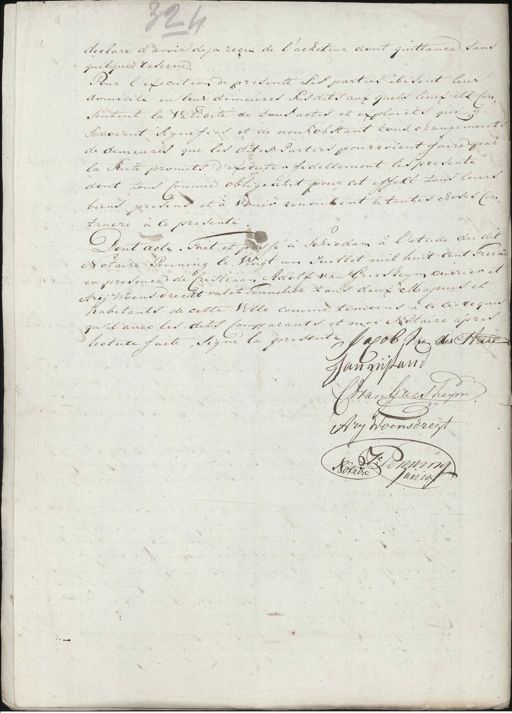 324
declare d'avoir deja reçu de l'acheteur dont quittance sans
quelque reserve
Pour l'execution de presente les parties elisent leur
domicile en leur demeures susdits aux quels lieux ils con
sentent la Validité de tous actes et exploits qui y
seroient signifies et de nonobstant tous changements
de demeures que les dits Parties pourroient faire par
la suite promets d'executer fidellement les presente
dont tous comme obligeant pour cet effect tous leurs
biens presens et à venir renoncent à toutes choses con
traire à la presente.
Dont acte. Fait et passé à Schiedam à l'etude du dit
Notaire Penning le Vingt un Juillet mil huit cent Treize
en presence de Christiaan Adolf van ouvrier et
Arij Woensdregt valet Tonnelier tous deux Majeurs et
habitants de cette Ville comme temoins à ce requis
qui avec les dits Comparants et moi Notaire après
lecture faite, signé la presente Jacob
Jan
C
Arij Woensdregt
Penning
Notaire